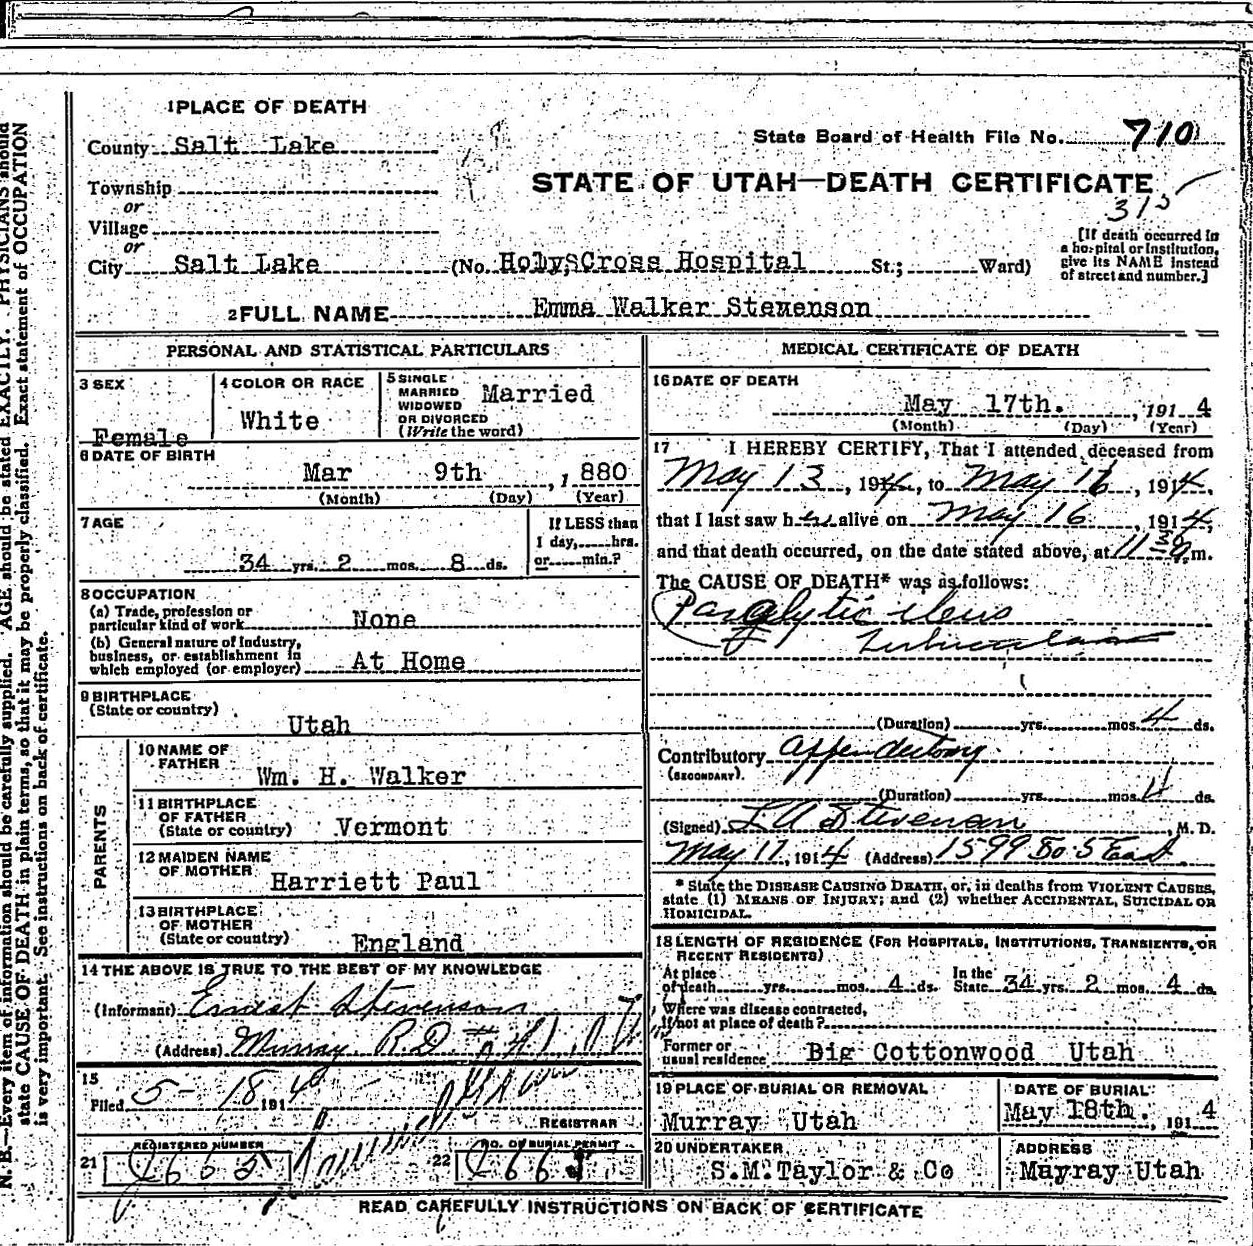 1 PLACE OF DEATH
County Salt Lake
State Board of Health File No. 710
STATE OF UTAH—DEATH CERTIFICATE
315
Township
or
Village
or
City Salt Lake (No. Holy Cross Hospital St.; Ward)
[If death occurred in
a hospital or institution,
give its NAME instead
of street and number.]
2 FULL NAME Emma Walker Stewenson
PERSONAL AND STATISTICAL PARTICULARS
3 SEX
Female
4 COLOR OR RACE
White
5 SINGLE
MARRIED
WIDOWED
OR DIVORCED
(Write the word)
Married
6 DATE OF BIRTH
Mar 9th , 1 880
(Month) (Day) (Year)
7 AGE
34 yrs. 2 mos. 8 ds.
If LESS than
1 day, hrs.
or min.?
8 OCCUPATION
(a) Trade, profession or
particular kind of work None
(b) General nature of industry,
business, or establishment in
which employed (or employer) At Home
9 BIRTHPLACE
(State or country)
Utah
PARENTS
10 NAME OF
FATHER
Wm. H. Walker
11 BIRTHPLACE
OF FATHER
(State or country) Vermont
12 MAIDEN NAME
OF MOTHER Harriett Paul
13 BIRTHPLACE
OF MOTHER
(State or country) England
14 THE ABOVE IS TRUE TO THE BEST OF MY KNOWLEDGE
(Informant) Ernest Stevenson
(Address) Murray R.D. #
15
Filed 5-18 1914
REGISTRAR
REGISTERED NUMBER
21
NO. OF BURIAL PERMIT
22
MEDICAL CERTIFICATE OF DEATH
16 DATE OF DEATH
May 17th. , 191 4
(Month) (Day) (Year)
17 I HEREBY CERTIFY, That I attended deceased from
May 13, 1914, to May 16, 1914,
that I last saw her alive on May 16, 1914,
and that death occurred, on the date stated above, at 11 30 a m.
The CAUSE OF DEATH* was as follows:
Paralytic ileus
(Duration) yrs. mos. 4 ds.
Contributory Appendectomy
(SECONDARY).
(Duration) yrs. mos. 4 ds.
(Signed) L A Stevenson, M. D.
May 17, 1914 (Address) 1599 So. 5 East
* State the DISEASE CAUSING DEATH, or, in deaths from VIOLENT CAUSES,
state (1) MEANS OF INJURY; and (2) whether ACCIDENTAL, SUICIDAL OR
HOMICIDAL.
18 LENGTH OF RESIDENCE (FOR HOSPITALS, INSTITUTIONS, TRANSIENTS, OR
RECENT RESIDENTS)
At place
of death yrs. mos. 4 ds.
In the
State 34 yrs. 2 mos. 4 ds.
Where was disease contracted,
if not at place of death?
Former or
usual residence Big Cottonwood Utah
19 PLACE OF BURIAL OR REMOVAL
Murray Utah
DATE OF BURIAL
May 18th. , 191 4
20 UNDERTAKER
S.M.Taylor & Co
ADDRESS
Mayray Utah
READ CAREFULLY INSTRUCTIONS ON BACK OF CERTIFICATE
N. B.—Every item of information should be carefully supplied. AGE should be stated EXACTLY. PHYSICIANS should
state CAUSE OF DEATH in plain terms, so that it may be properly classified. Exact statement of OCCUPATION
is very important. See instructions on back of certificate.